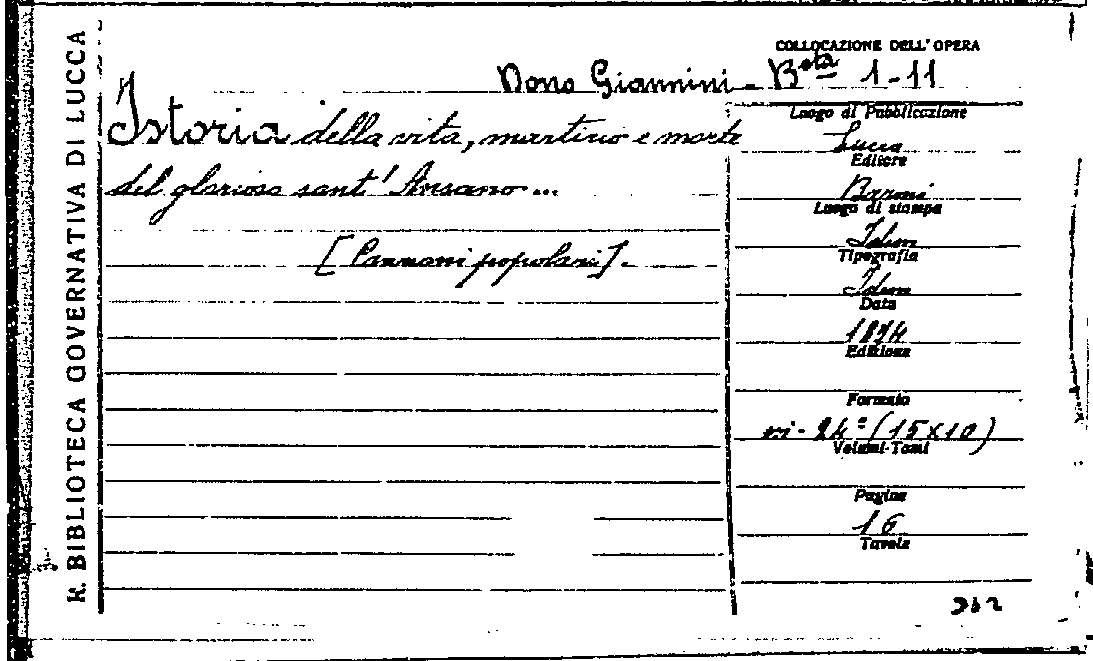 R. BIBLIOTECA GOVERNATIVA DI LUCCA
COLLOCAZIONE DELL'OPERA
Dono Giannini - Bsta 1-11
Istoria della vita, martirio e morte
del glorioso sant'Ansano...
[Canzoni popolari].
Luogo di Pubblicazione
Lucca
Editore
Baroni
Luogo di stampa
Idem
Tipografia
Idem
Data
1874
Edizione
Formato
in-24° (15x10)
Volumi-Tomi
Pagine
16
Tavole